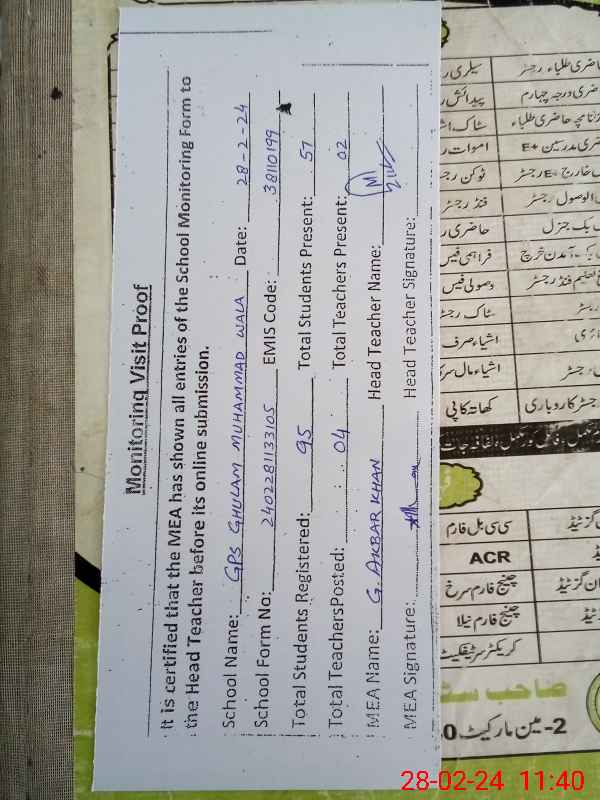 Monitoring Visit Proof
It is certified that the MEA has shown all entries of the School Monitoring Form to
the Head Teacher before its online submission.
School Name: GPS GHULAM MUHAMMAD WALA Date: 28-2-24
School Form No: 2402281133105 EMIS Code: 38110199
Total Students Registered: 95 Total Students Present: 57
Total TeachersPosted: 04 Total Teachers Present: 02
MEA Name: G. AKBAR KHAN Head Teacher Name:
MEA Signature: Head Teacher Signature:
حاضری طلباء رجسٹر سیلری
حاضری درجہ چہارم پیدائش
حاضری طلباء سٹاک
حاضری مدرسین E+ اموات
خارج E+ رجسٹر ٹوکن
الوصول رجسٹر فنڈ رجسٹر
بک جنرل حاضری
آمدن خرچ فراہمی فیس
فنڈ رجسٹر وصولی فیس
سٹاک رجسٹر
اشیاء صرف
رجسٹر اشیاء مال
رجسٹر کاروباری کھاتہ کاپی
گزیٹڈ سی سی بل فارم
ACR
گزیٹڈ چینج فارم سرخ
چینج فارم نیلا
کریکٹر سرٹیفکیٹ
صاحب
2- مین مارکیٹ
28-02-24 11:40